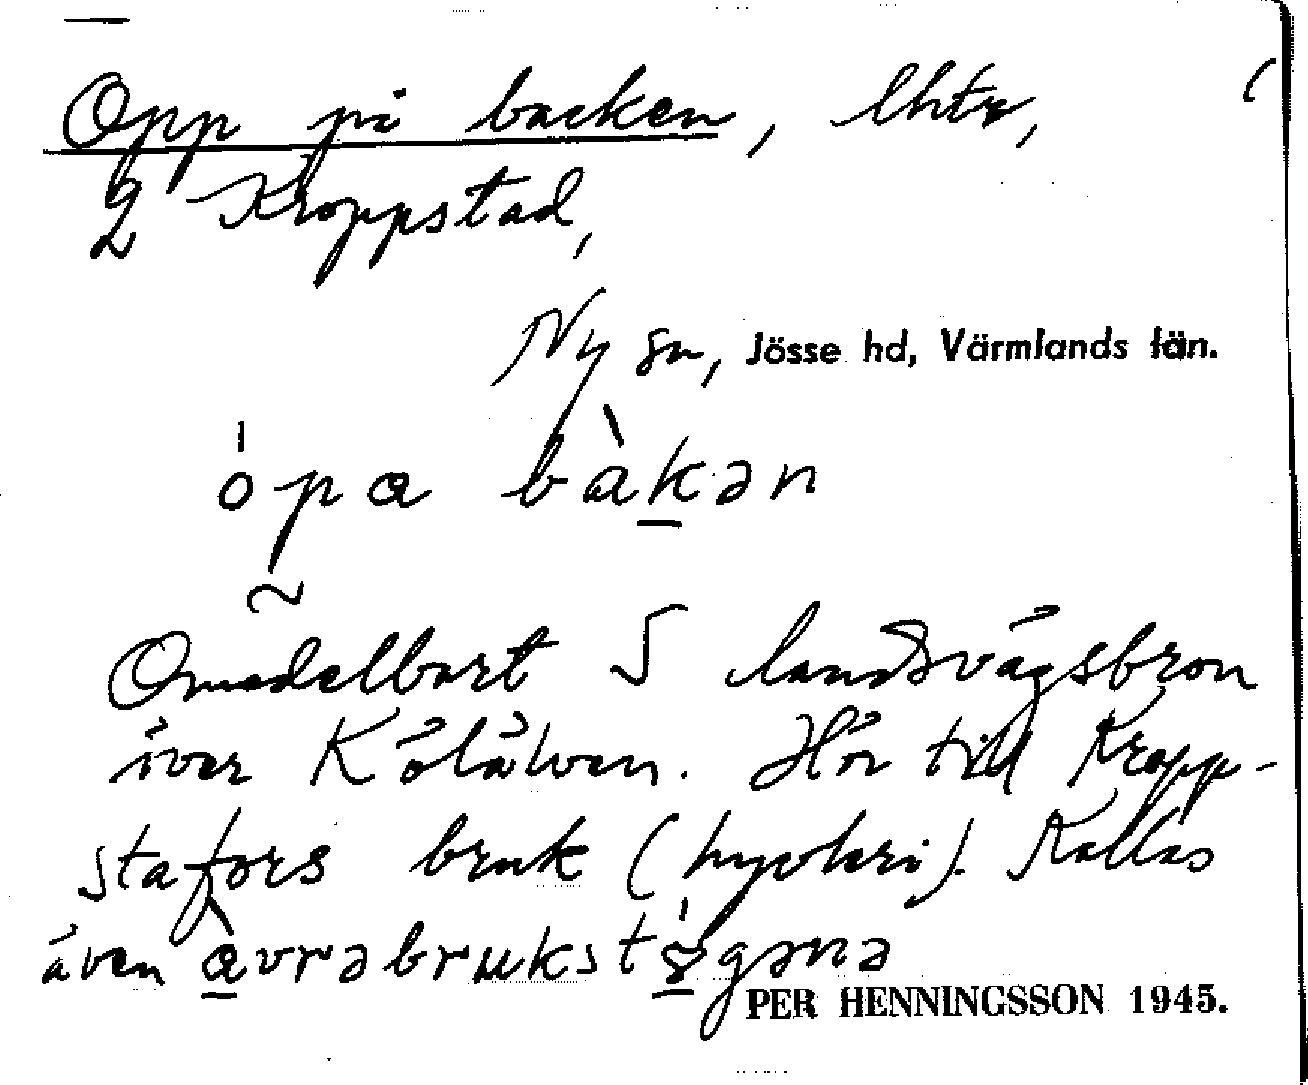 Opp på backen, lhtr,
2 Kroppstad,
Ny sn, Jösse hd, Värmlands län.
ópa bàkən
Omedelbart S landsvägsbron
över Kölälven. Hör till Kropp-
stafors bruk (hyvleri). Kallas
även àvrəbrukstø̀gənə
PER HENNINGSSON 1945.